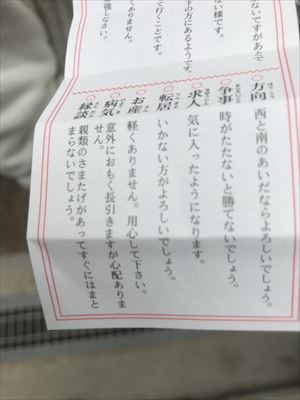 強しなさい。
くありません。
て行くことです。
下の方にあるようです。
ない様です。
ないですがあとで
○方向 西と南のあいだならよろしいでしょう。
○争事 時がたたないと勝てないでしょう。
○求人 気に入ったようになります。
○転居 いかない方がよろしいでしょう。
○お産 軽くありません。用心して下さい。
○病気 意外におもく長引きますが心配ありま
せん。
○縁談 親類のさまたげがあってすぐにはまと
まらないでしょう。